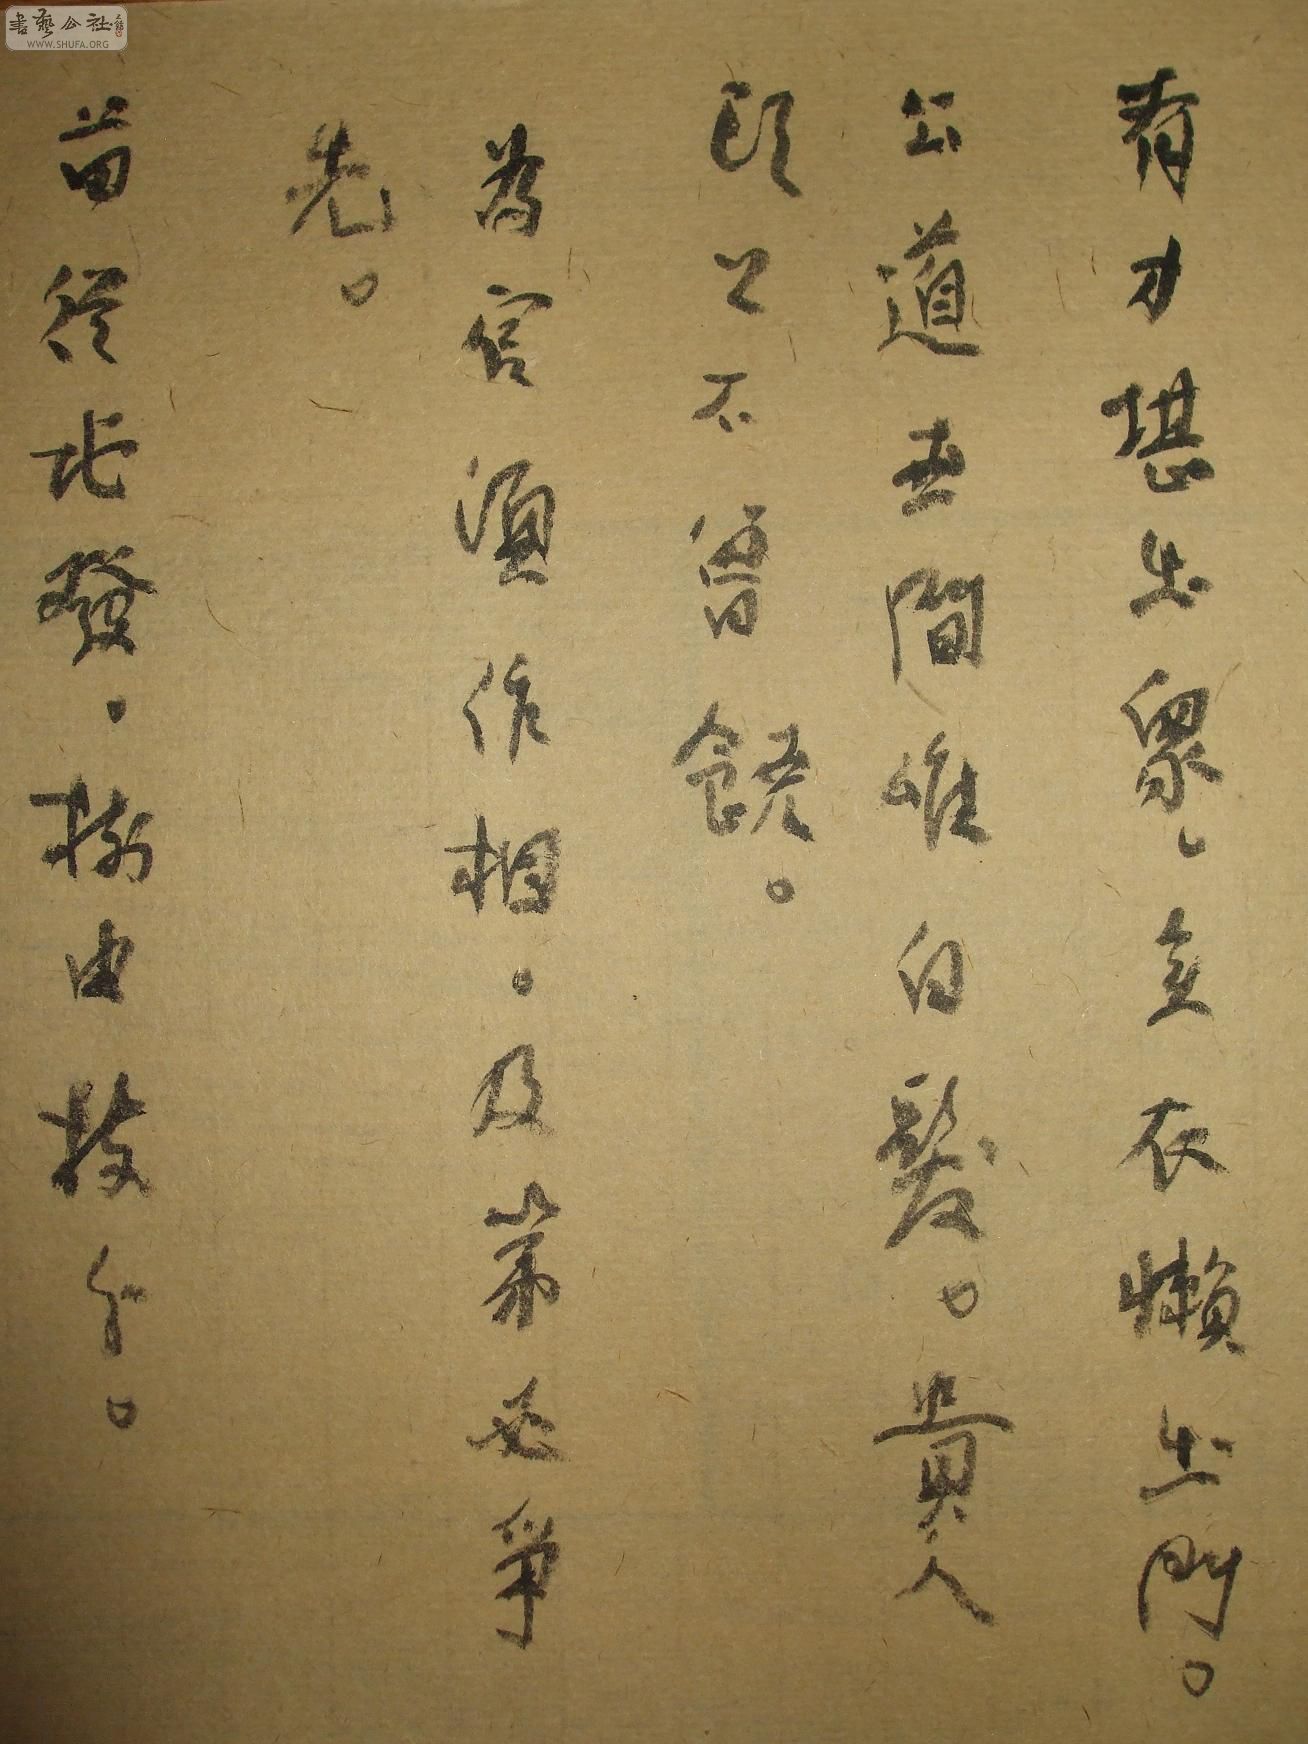 有才堪出眾，無衣懶出門。
公道世間唯白髮。貴人
頭上不曾饒。
為官須作相。及第必爭
先。
苗從地發，樹由枝分。
書藝公社
WWW.SHUFA.ORG